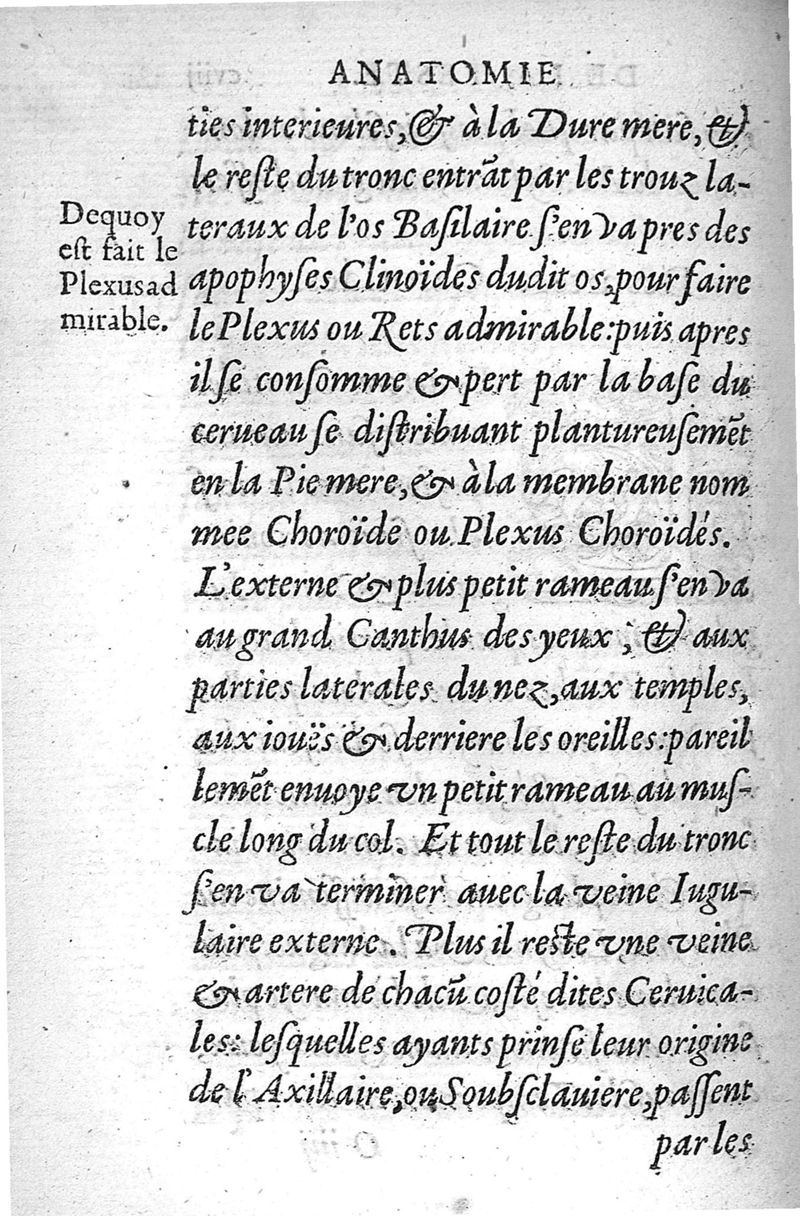 ANATOMIE
ties interieures, & à la Dure mere, &
le reſte du tronc entrãt par les trouz la-
teraux de l'os Baſilaire ſ'en va pres des
Dequoy
eſt fait le
Plexus ad
mirable.
apophyſes Clinoïdes dudit os, pour faire
le Plexus ou Rets admirable: puis apres
il ſe conſomme & pert par la baſe du
cerueau ſe diſtribuant plantureuſemẽt
en la Pie mere, & à la membrane nom
mee Choroïde ou Plexus Choroïdés.
L'externe & plus petit rameau ſ'en va
au grand Canthus des yeux, & aux
parties laterales du nez, aux temples,
aux iouës & derriere les oreilles: pareil
lemẽt enuoye vn petit rameau au muſ-
cle long du col. Et tout le reſte du tronc
ſ'en va terminer auec la veine Iugu-
laire externe. Plus il reſte vne veine
& artere de chacũ coſté dites Ceruica-
les: leſquelles ayants prinſe leur origine
de l'Axillaire, ou Soubſclauiere, paſſent
par les